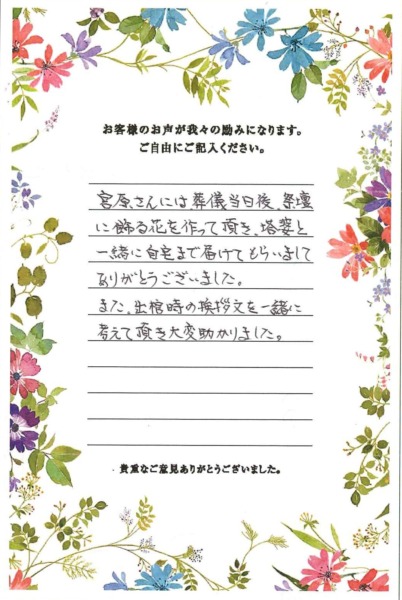 お客様のお声が我々の励みになります。
ご自由にご記入ください。
宮原さんには葬儀当日後、祭壇
に飾る花を作って頂き、塔婆と
一緒に自宅まで届けてもらいまして
ありがとうございました。
また、出棺時の挨拶文を一緒に
考えて頂き大変助かりました。
貴重なご意見ありがとうございました。